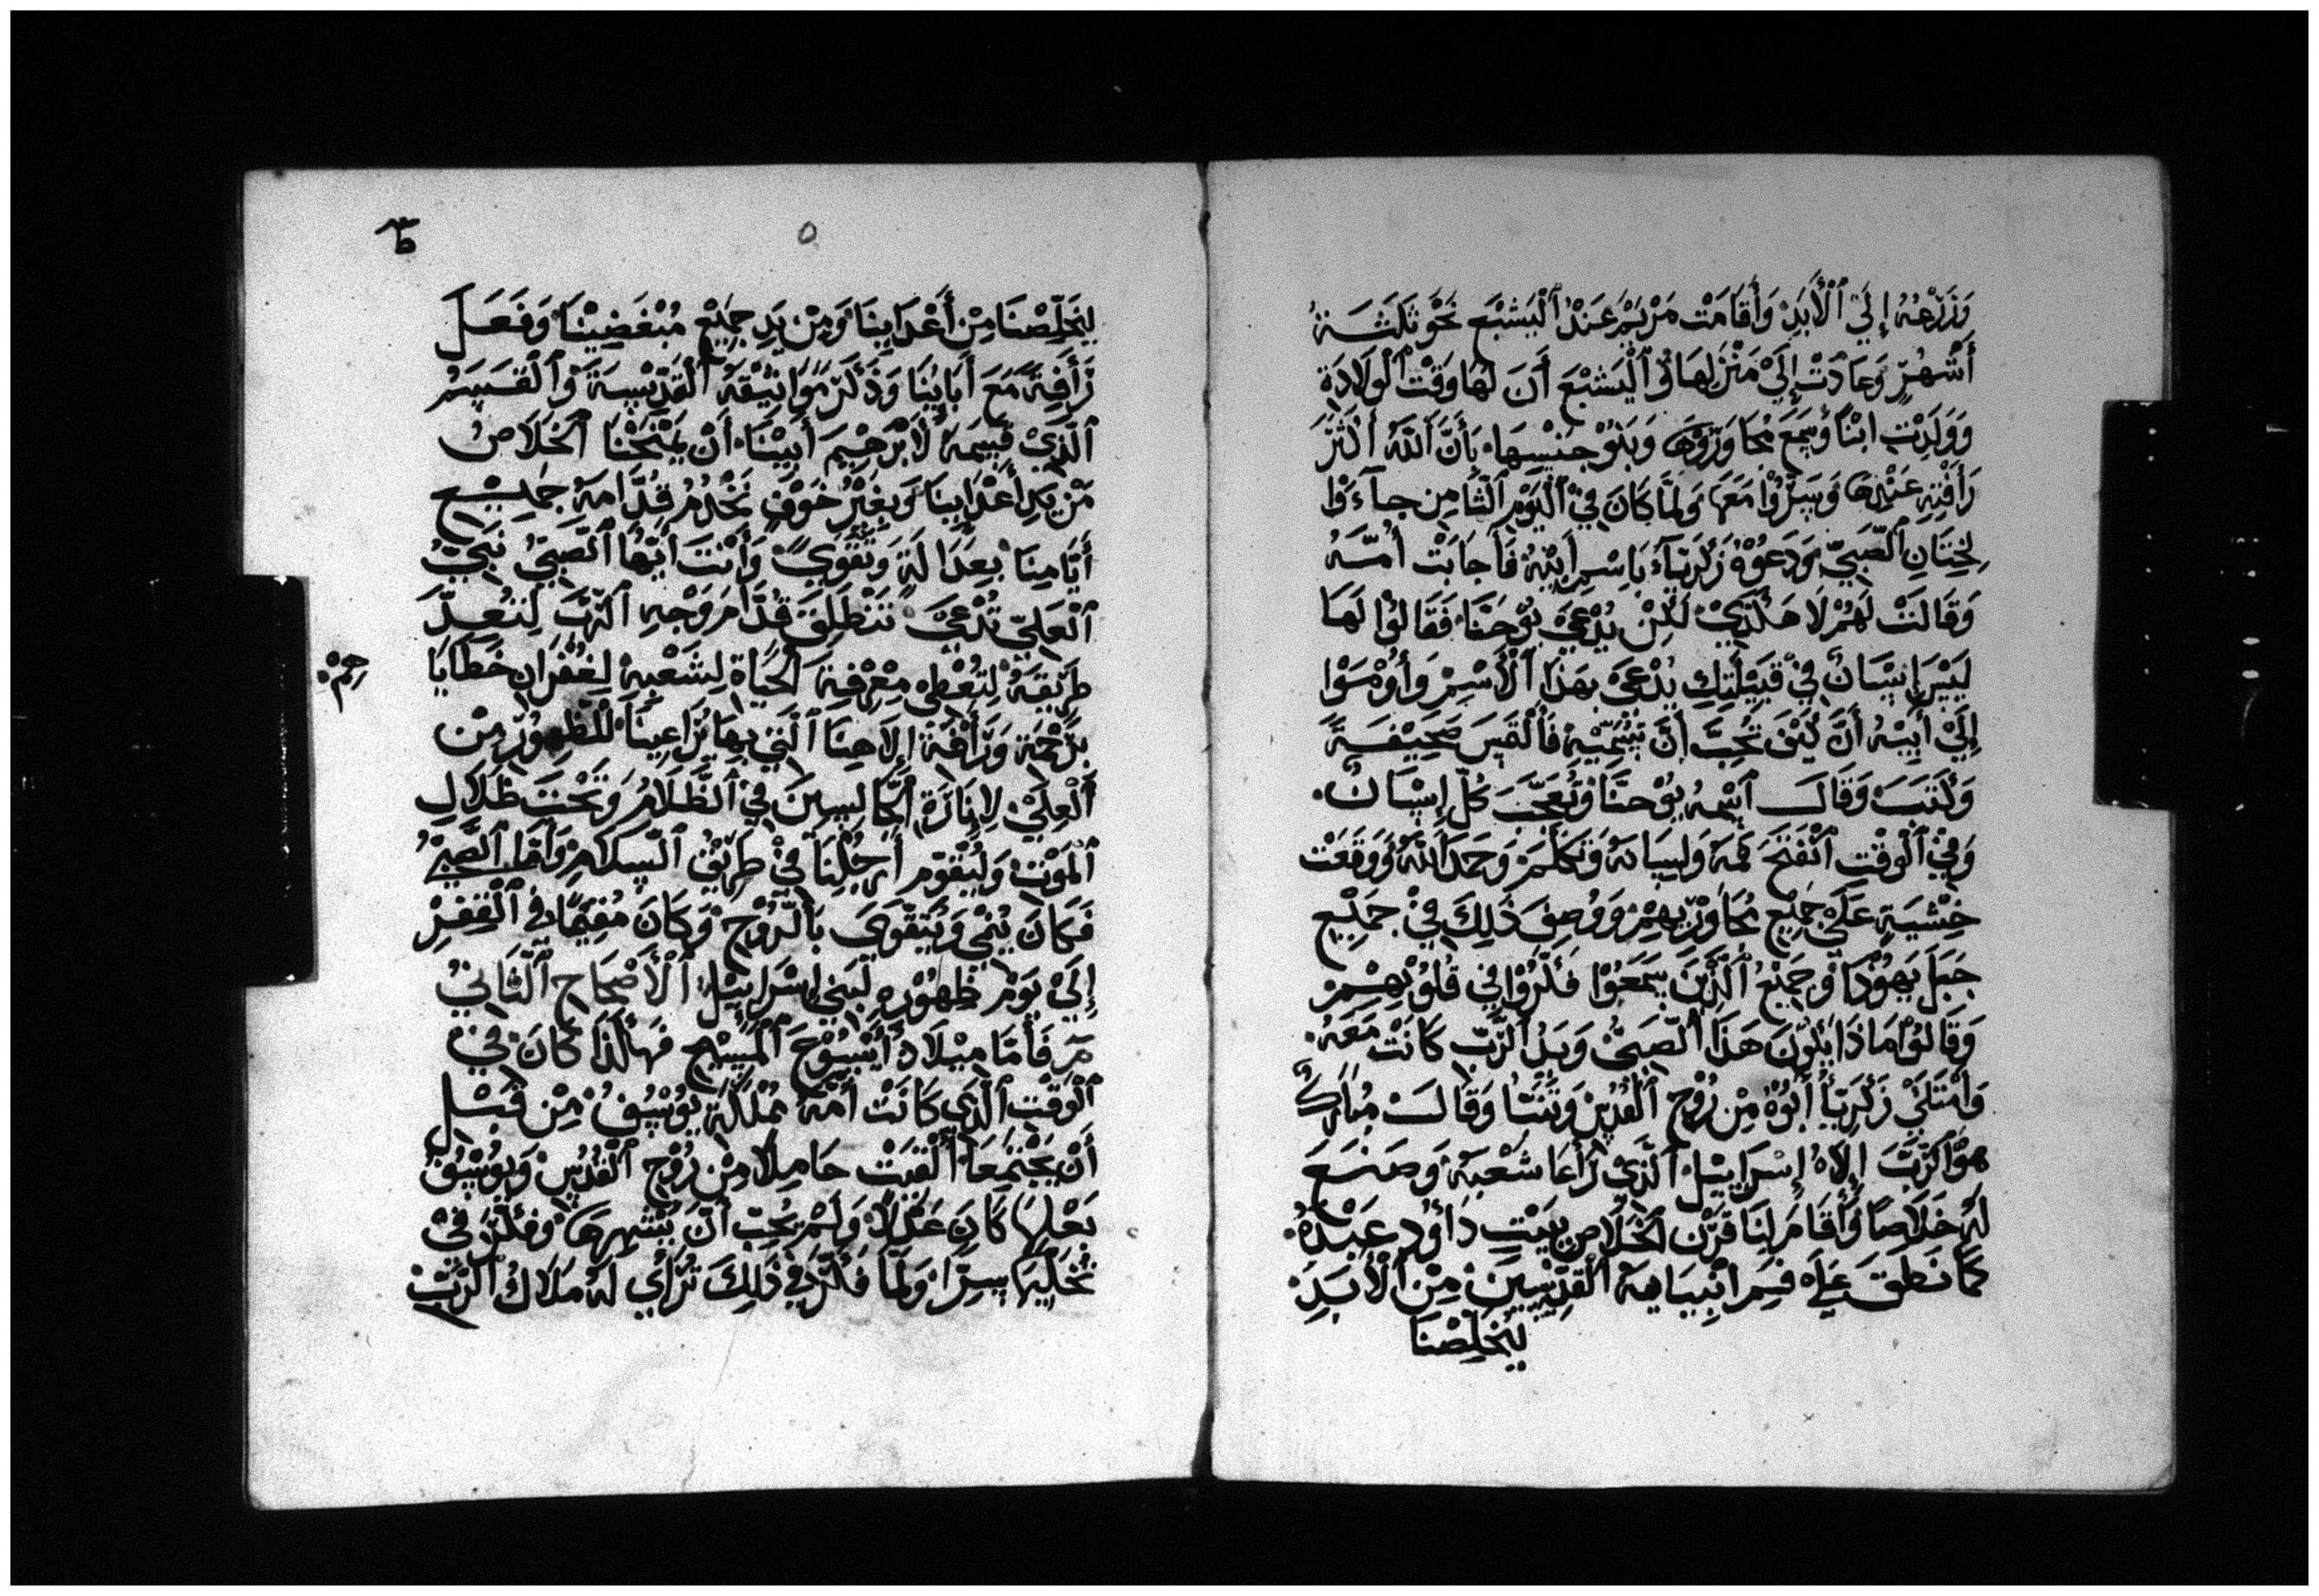 وَزَرْعُهُ إِلَيَ ٱلْأَبَدِ وَأَقَامَتْ مَرْيَمُ عَنْدُ ٱلْيَشْبَعِ نَحْوَ ثَلَثَةُ
أَشْهُرٍ وَعَادَتْ إِلَيْ مَنْزِلِهَا وُ ٱلْيَشْبَعَ أَنَ لَهَا وَقْتُ ٱلْوِلَادَةِ
وَوَلَدِتْ ابْنًا وَسِمَعَ مُجَاوَرُوهَا وَبَنُوْ جِنْسِهَا بَأَنَّ ٱللّٰهُ أَكْثَرَ
رَأْفَتِهِ عَنْدِهَا وَسِرُّوْا مَعَهَا وَلَمَّا كَانَ فِيْ ٱلْيَوْمِ ٱلثَّامِنِ جَآءُوْا
لِخِتَانِ ٱلصَّبِيِّ وَدَعُوْهُ زَكَرِيَّآءَ بَاسْمِ أَبِيْهُ فَأَجَابَتْ أُمُّهُ
وَقَالَتْ لَهُمْ لَا هَكَذَيْ لَكِنْ يُدْعَيْ يُوْحَنَّا فَقَالُوْا لَهَا
لَيْسَ إِنْسَانٌ فِيْ قَبِيْلَتِكِ يُدْعَيَ بِهَذَا ٱلْأَسْمِ وَأَوْمَوْا
إِلَيْ أَبِيْهُ أَنَّ كَيْفَ تُحِبَّ أَنَّ تُسَمِّيْهِ فَٱلْتَمَسَ صَحِيْفَةً
وَكَتَبَ وَقَالَ ٱسْمُهُ يُوْحَنَّا وَتُعَجَّبَ كُلِّ إِنْسَانٌ.
وَفِيْ ٱلْوَقْتِ ٱنْفَتَحَ فَمَهُ وَلِسَانَهُ وَتَكَلَّمَ وَحَمَدَ ٱللّٰهُ وَوَقَعَتْ
خِشْيَةٍ عَلَيْ جَمِيْعِ مُجَاوِرِيْهِمْ وَوُصِفَ ذَلِكَ فِيْ جَمِيْعِ
جَبَلَ يَهُوْدَا وَجَمِيْعُ ٱلَّذِيْنَ سَمَعَوْا فَكَّرُوْا فِيْ قُلُوْبِهِمْ
وَقَالُوْا مَاذَا يَكُوْنَ هَذَا ٱلصَّبِيُّ وَيَدُ ٱلرَّبِّ كَانَتْ مَعَهُ.
وَٱمْتَلَيْ زَكَرِيَّا أَبُوْهُ مِنْ رُوْحِ ٱلْقُدُسِ وَتَنَبَّا وَقَالَ مُبَارَكٌ
هُوَ ٱلرَّبَّ إِلَاهُ إِسْرَايِيْلَ ٱلَّذِيْ رَأْعَا شَعْبَهُ وَصَنَعَ
لَهُ خَلَاصًا وَأَقَامَ لِنَا قَرْنَ ٱلْخَلَاصِ بِبَيْتِ دَاوُدِ عَبْدَهُ.
كَمَا نَطَقَ عَلَيْ فَمِ أَنْبِيَايِهِ ٱلْقِدِّيْسِيْنَ مِنْ ٱلْأَبَدِ.
لِيُخَلِصْنَا
٥
لِيُخَلِّصْنَا مِنْ أَعْدَايِنَا وَمِنْ يَدِ جَمِيْعِ مُبْغَضِيْنَا وَفَعَلَ
رَأْفَةً مَعَ أَبَايِنَا وَذَكَرَ مَوَاثِيْقَهُ ٱلْقَدِّيْسِةَ وَٱلْقَسَمُ
ٱلَّذِيْ قَسِمَهُ لَأَبْرَهِيْمَ أَبِيْنَا أَنْ يَمْنَحْنَا ٱلْخَلَاصُ
مَنْ يَدِ أَعْدَايِنَا وَبِغَيْرُ خَوْفٍ نَخْدُمُ قِدَّامَهُ جَمِيْعِ
أَيَّامِنَا بِعَدَالَةٍ وَتَقْوَيً وَأَنْتَ أَيُّهَا ٱلصَّبِيُّ نَبِيُّ
ٱلْعَلِيِّ تُدْعَيَ تَنْطَلِقَ قُدَّامَ وَجْهِ ٱلرَّبَّ لِتُعِدَّ
طَرِيْقَهُ لِتُعْطِي مِعْرَفِةَ ٱلْحَيَاةِ لِشَعْبِهْ لِغُفْرَانِ خَطَايَا
بِرَحْمَةِ وَرَأْفَةِ إِلَاهِنَا ٱلَّتِيْ بِهَا يُرَاعِيْنَا لِلْظِهُوْرِ مِنْ
ٱلْعِلَيْ لِإِنَارَةِ ٱلْجَالِسِيْنَ فِيْ ٱلظَّلَامُ وَتَحْتَ ظَلَالِ
ٱلْمَوْتِ وَلْيُقَوِّمِ أَرْجُلِنَا فِيْ طَرِيْقِ ٱلسَّلَامِ وَأَمَّا ٱلصَّبِيُّ
فَكَانَ يُنْمَيْ وَيُتَقَوَّيَ بَٱلرُّوْحِ وَكَانَ مُقِيْمًا فِي ٱلْقِفَرِ
إِلَيْ يَوْمِ ظَهُوْرِهِ لَبَنِي إِسْرَايِيْلَ ٱلْأَصْحَاحِ ٱلثَّانِيْ
مر فَأَمَّا مِيْلَادِ أَيْسُوْعَ ٱلْمَسِيْحِ فَهَأْكَذَا كَانَ فِيْ
ٱلْوَقْتِ ٱلَّذِي كَانَتْ أُمُّهُ مُمْلَكَةً يُوْسُفُ مِنْ قَبْلِ
أَنْ يَجْتَمِعَا ٱلْقَتْ حَامِلًا مِنْ رُوْحِ ٱلْقُدُسِ وَيُوْسُفُ
بَعْلِهَا كَانَ عَدْلًا وَلَمْ يُحِبِّ أَنَّ يُشْهِرِهَا وَفَكَّرَ فِيْ
تَخَلِيِّهَا سِرًّا وَلَمَّا فَكَّرَ فِيْ ذَلِكَ تَرَأَي لَهُ مَلَاكُ ٱلرَّبِّ